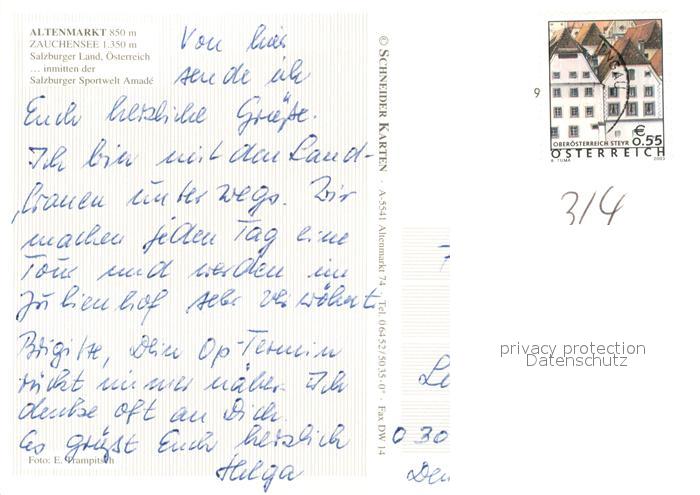 ALTENMARKT 850 m
ZAUCHENSEE 1.350 m
Salzburger Land, Österreich
... inmitten der
Salzburger Sportwelt Amadé
Von hier
sende ich
Euch herzliche Grüße.
Ich bin mit den Land-
frauen unterwegs. Wir
machen jeden Tag eine
Tour und werden im
hof sehr verwöhnt.
Brigitte, Dein Op-Termin
rückt immer näher. Ich
denke oft an Dich.
Es grüßt Euch herzlich
Helga
Foto: E. Trampitsch
© SCHNEIDER KARTEN · A-5541 Altenmarkt 74 · Tel. 06452/5035-0* · Fax DW 14
9
€
0.55
OBERÖSTERREICH STEYR
ÖSTERREICH
A. TUMA 2003
3/4
privacy protection
Datenschutz
030